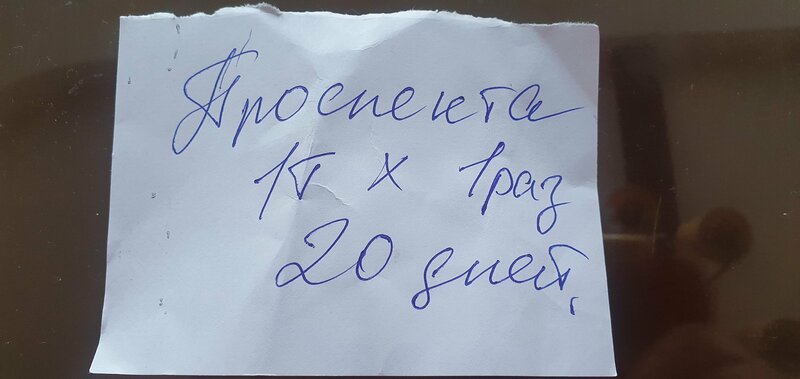 Проспекта
1т х 1раз
20 дней,